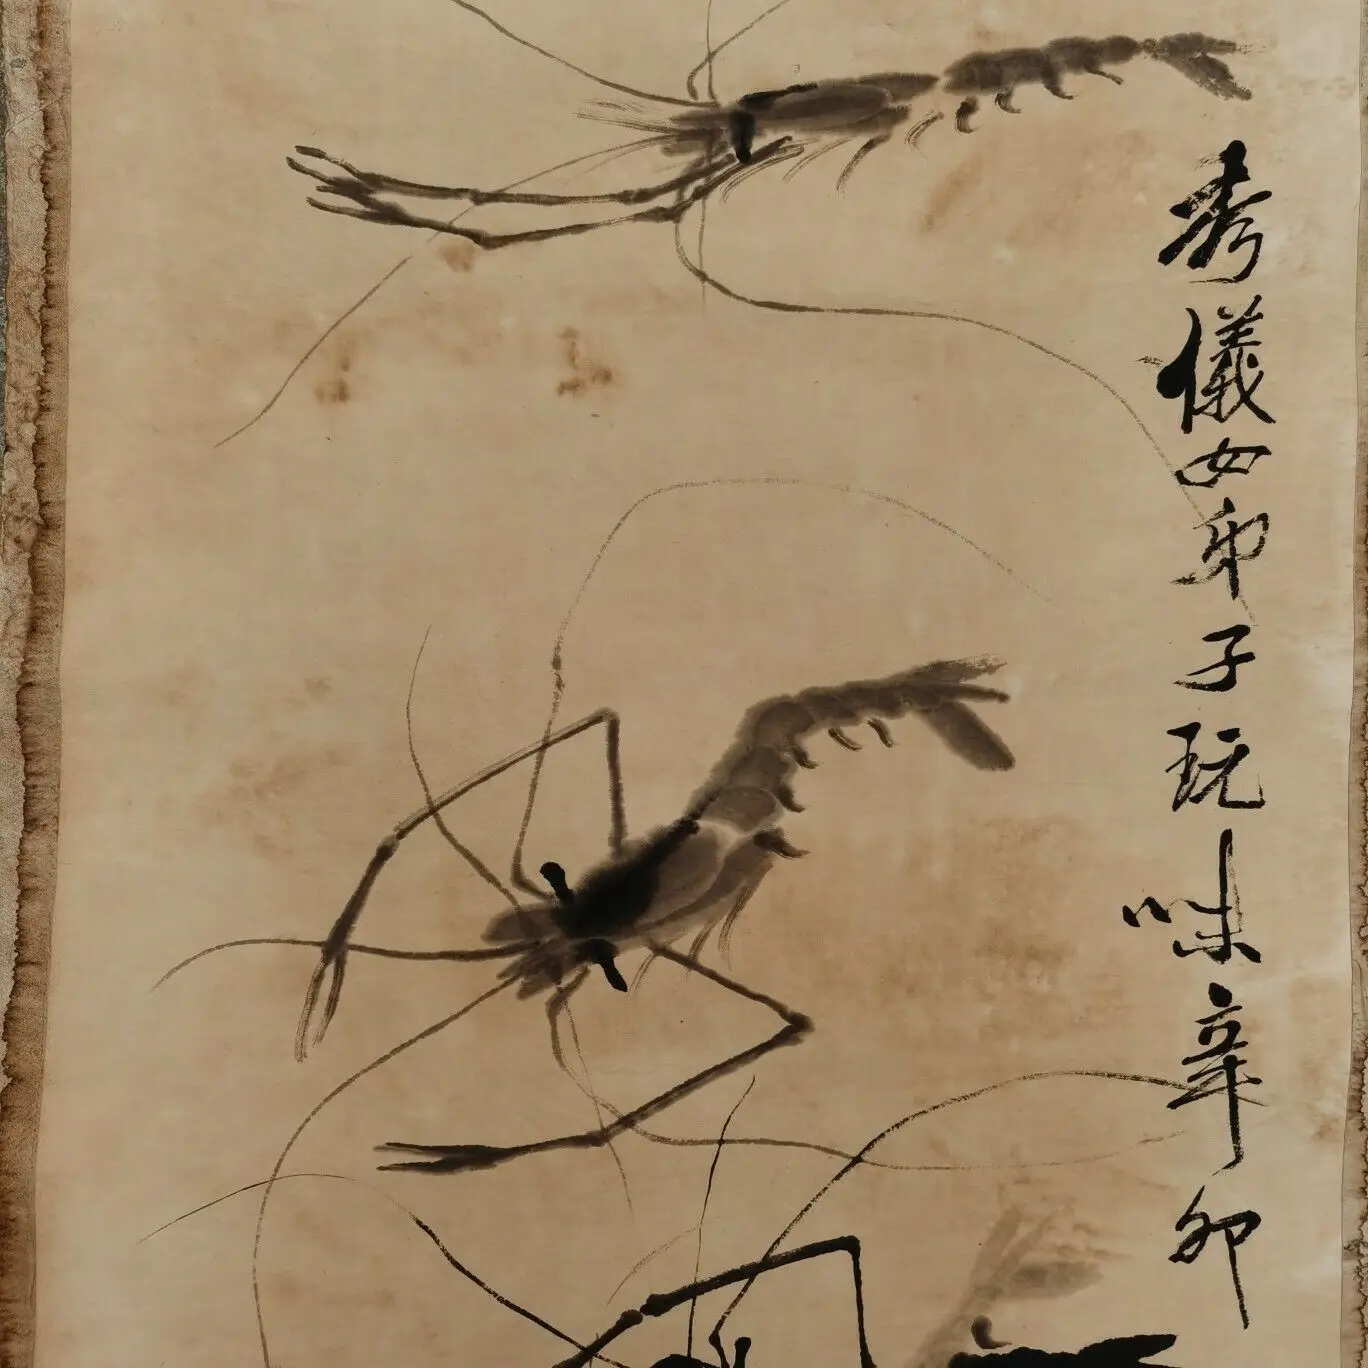 秀儀女弟子玩味辛卯